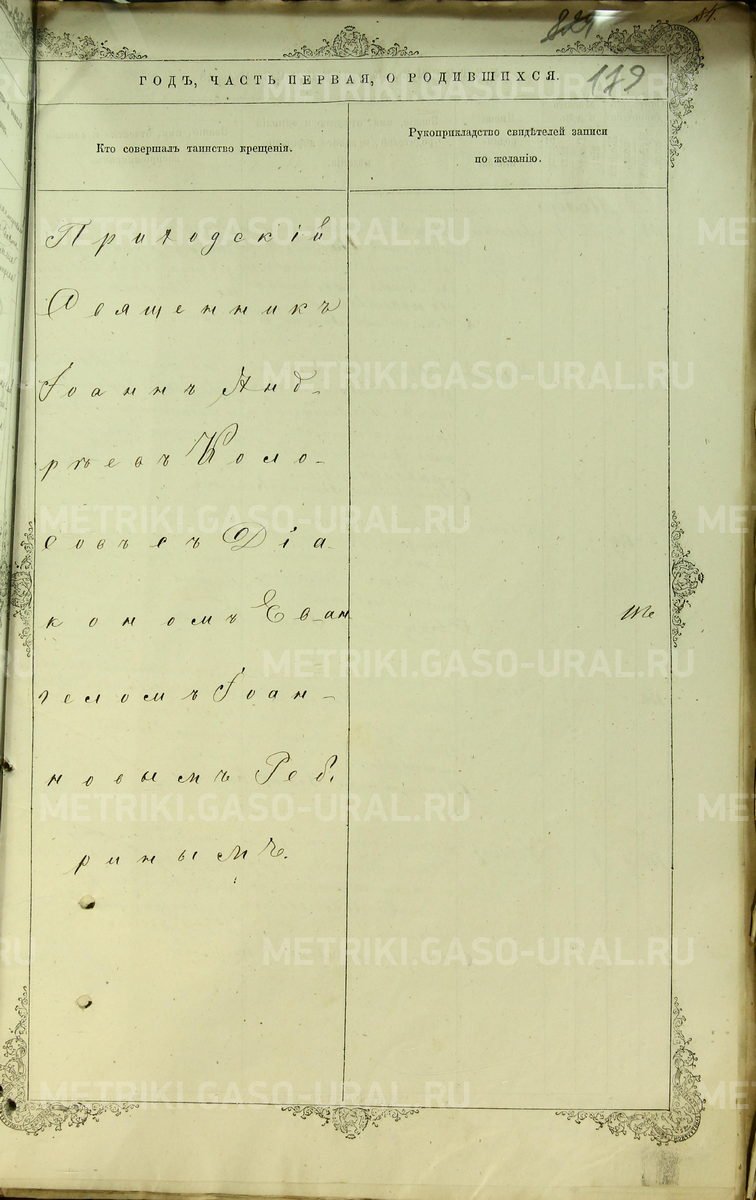 84.
179
ГОДЪ, ЧАСТЬ ПЕРВАЯ, О РОДИВШИХСЯ.
Кто совершалъ таинство крещенія.
Рукоприкладство свидѣтелей записи
по желанію.
Приходскій
Священникъ
Іоаннъ Анд-
рѣевъ Коло-
совъ съ Діа
кономъ Еван
геломъ Іоан-
новымъ Реб.
ринымъ.
METRIKI.GASO-URAL.RU